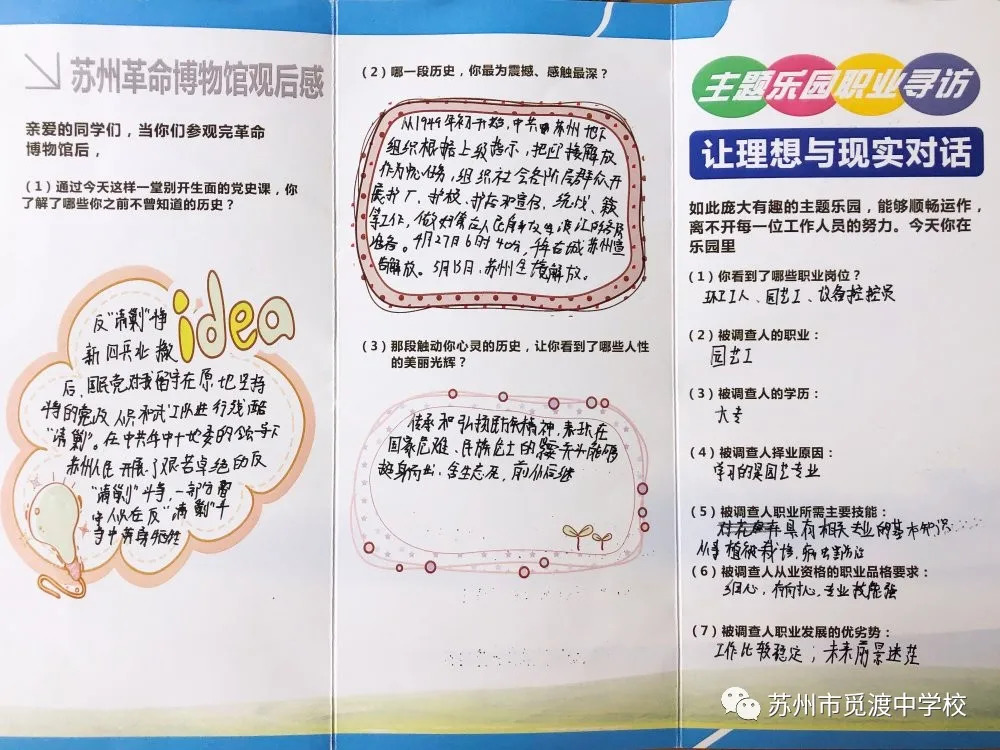 苏州革命博物馆观后感
亲爱的同学们，当你们参观完革命
博物馆后，
（1）通过今天这样一堂别开生面的党史课，你
了解了哪些你之前不曾知道的历史？
idea
反“清剿”斗争
新四兵业撤
后，国民党对我留守在原地坚持
的党及人员和武工队进行残酷
“清剿”。在中共中十地委的领导下
苏州人民开展了艰苦卓绝的反
“清剿”斗争，一部分留
守人队在反“清剿”斗
争中英勇牺牲
（2）哪一段历史，你最为震撼、感触最深？
从1949年初开始，中共苏州地下
组织根据上级指示，把迎接解放
作为中心任务，组织社会各阶层群众开
展护厂、护校、护店和宣传、统战、
等工作，做好配合人民解放军渡江的各项
准备。4月27日6时40分，古城苏州宣
告解放。5月13日，苏州全境解放。
（3）那段触动你心灵的历史，让你看到了哪些人性
的美丽光辉？
传承和弘扬断头精神，表现在
国家危难、民族危亡的关头能够
挺身而出，舍生忘死，前仆后继
主题乐园职业寻访
让理想与现实对话
如此庞大有趣的主题乐园，能够顺畅运作，
离不开每一位工作人员的努力。今天你在
乐园里
（1）你看到了哪些职业岗位？
环卫工人、园艺工、设备控控员
（2）被调查人的职业：
园艺工
（3）被调查人的学历：
大专
（4）被调查人择业原因：
学习的是园艺专业
（5）被调查人职业所需主要技能：
具有相关专业的基本知识
从事植被栽培，病虫害防治
（6）被调查人从业资格的职业品格要求：
细心，有耐心，专业技能强
（7）被调查人职业发展的优劣势：
工作比较稳定；未来前景迷茫
苏州市觅渡中学校